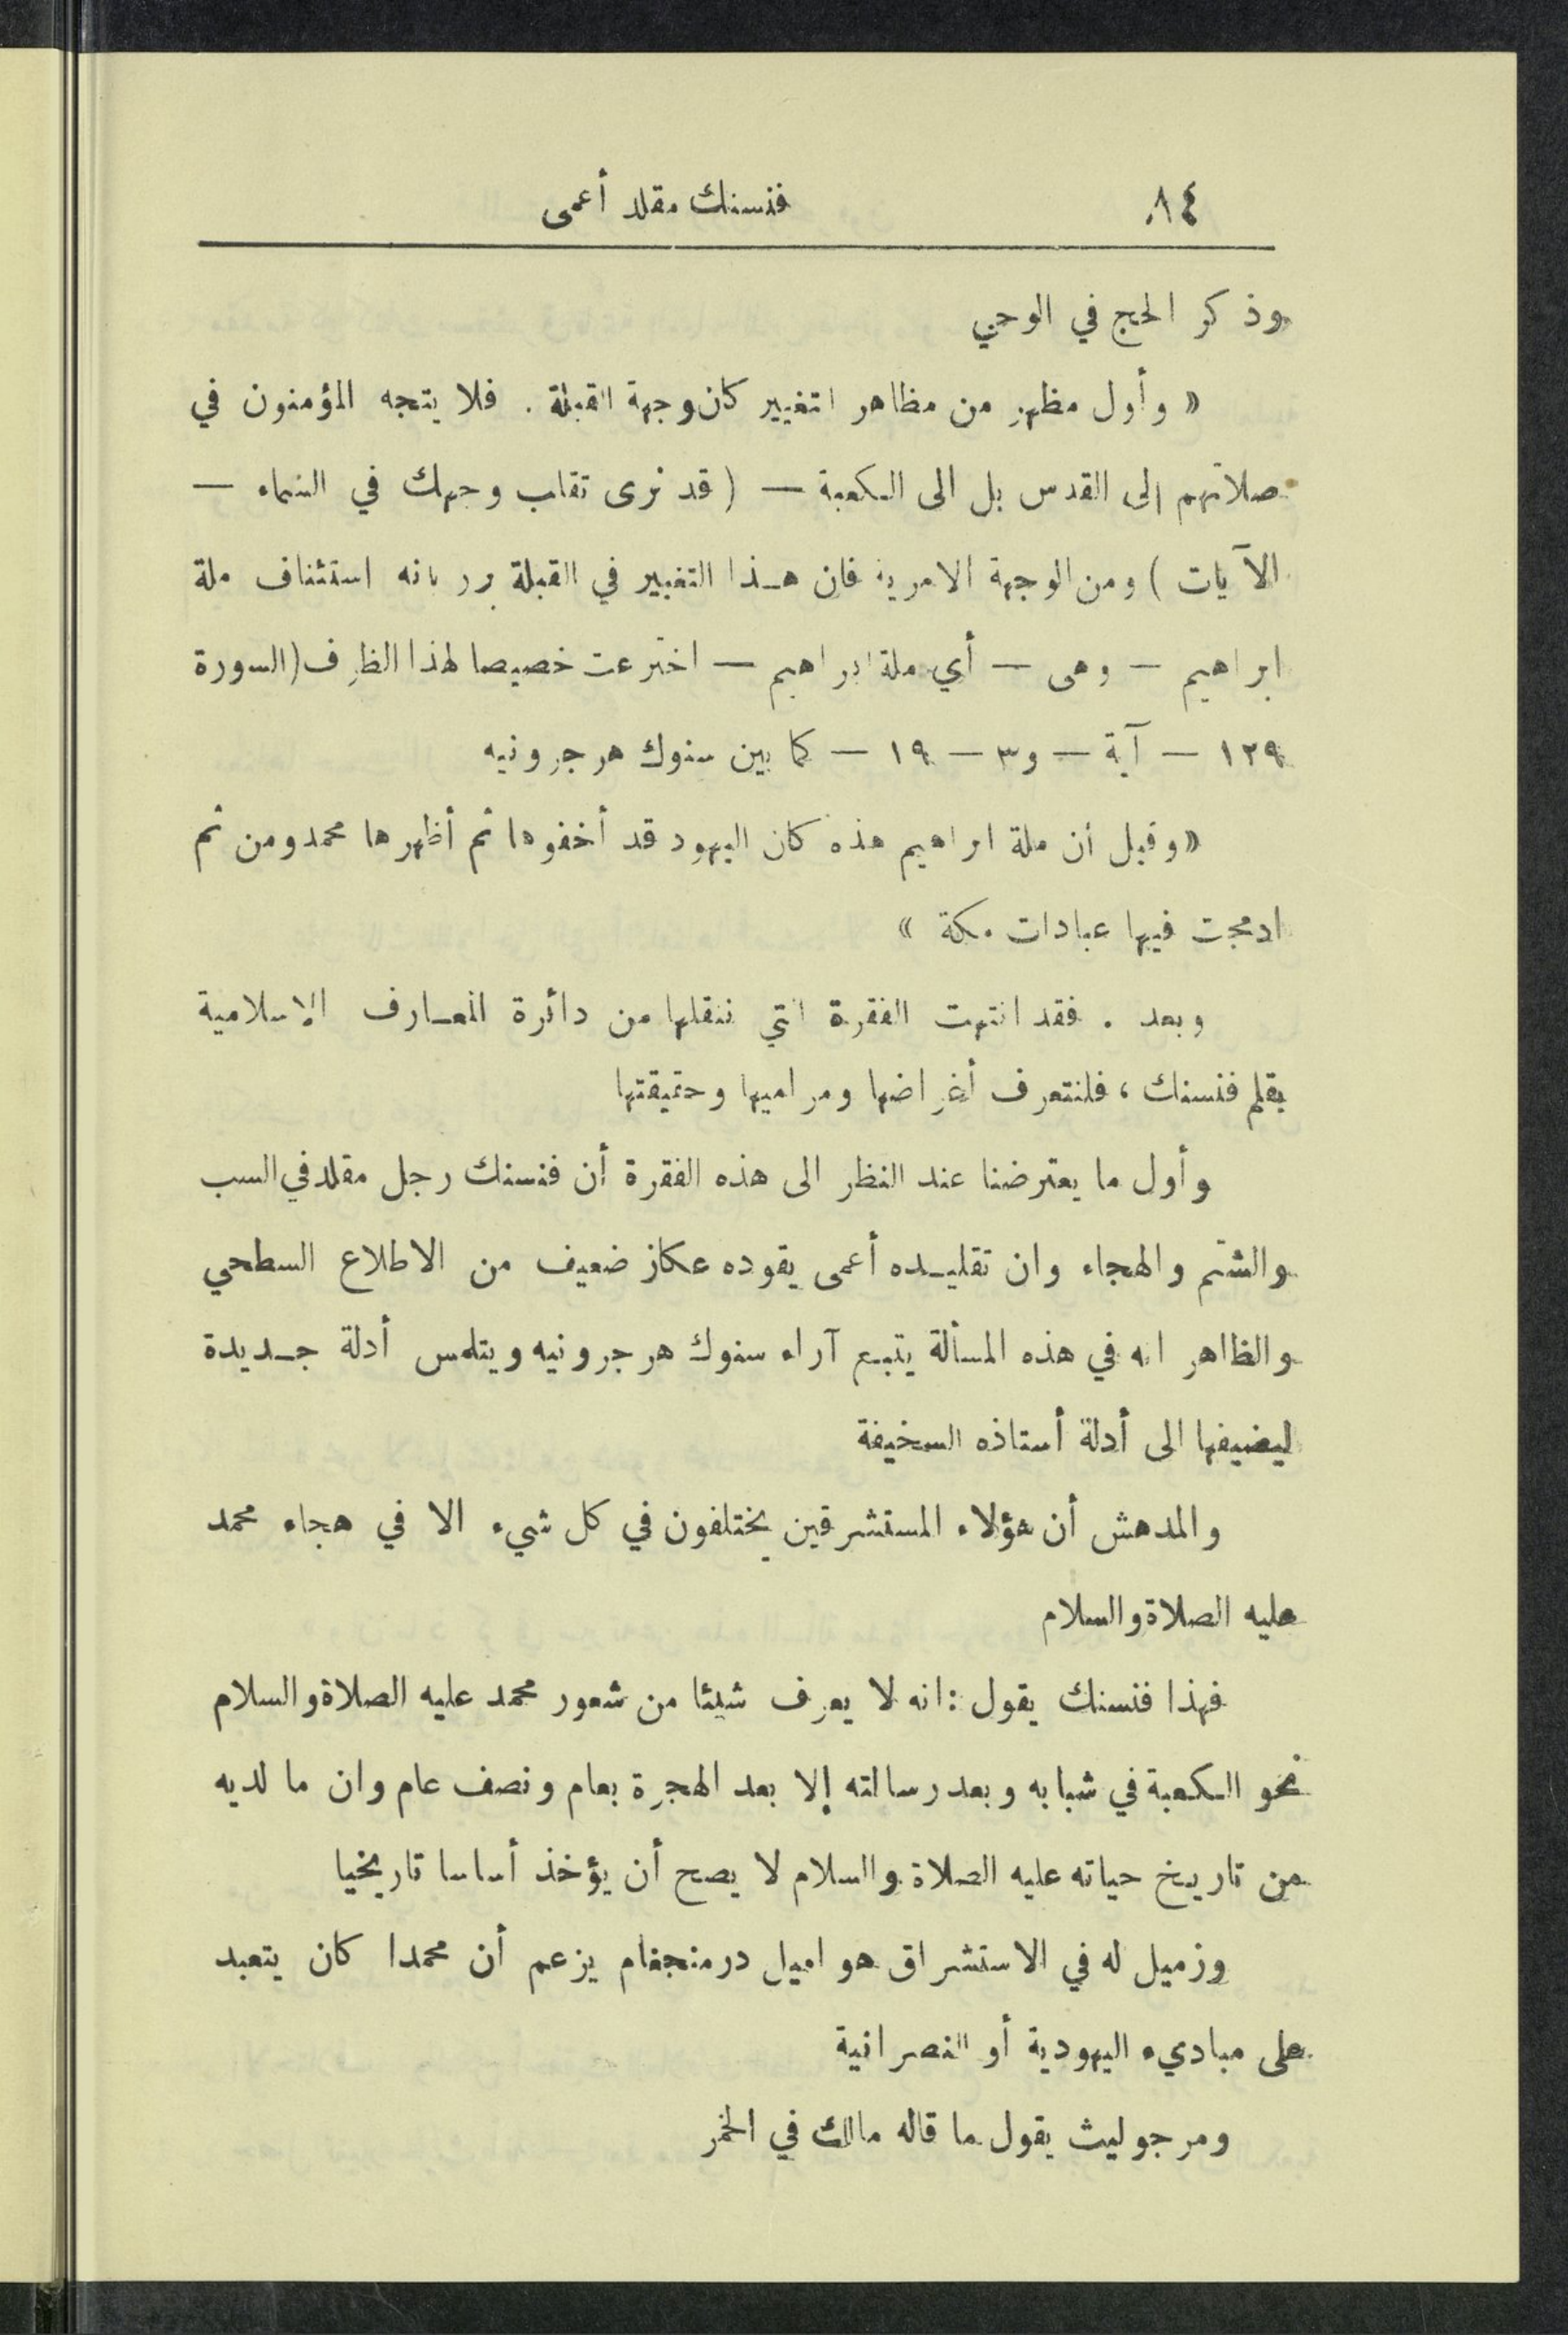 ٨٤ فنسنك مقلد أعمى
وذكر الحج في الوحي
« وأول مظهر من مظاهر التغيير كان وجهة القبلة . فلا يتجه المؤمنون في
صلاتهم إلى القدس بل الى الكعبة — ( قد نرى تقلب وجهك في السماء —
الآيات ) ومن الوجهة الامرية فان هذا التغيير في القبلة برر بانه استئناف ملة
ابراهيم — وهى — أي ملة ابراهيم — اخترعت خصيصا لهذا الظرف (السورة
١٢٩ — آية — و٣ — ١٩ — كما بين سنوك هرجرونيه
« وقيل أن ملة ابراهيم هذه كان اليهود قد أخفوها ثم أظهرها محمد ومن ثم
ادمجت فيها عبادات مكة »
وبعد . فقد انتهت الفقرة التي ننقلها من دائرة المعارف الإسلامية
بقلم فنسنك ، فلنتعرف أغراضها ومراميها وحقيقتها
وأول ما يعترضنا عند النظر الى هذه الفقرة أن فنسنك رجل مقلد في السب
والشتم والهجاء وان تقليده أعمى يقوده عكاز ضعيف من الاطلاع السطحي
والظاهر انه في هذه المسألة يتبع آراء سنوك هرجرونيه ويتلمس أدلة جديدة
ليضيفها الى أدلة أستاذه السخيفة
والمدهش أن هؤلاء المستشرقين يختلفون في كل شيء الا في هجاء محمد
عليه الصلاة والسلام
فهذا فنسنك يقول : انه لا يعرف شيئا من شعور محمد عليه الصلاة والسلام
نحو الكعبة في شبابه وبعد رسالته إلا بعد الهجرة بعام ونصف عام وان ما لديه
من تاريخ حياته عليه الصلاة والسلام لا يصح أن يؤخذ أساسا تاريخيا
وزميل له في الاستشراق هو اميل درمنجفام يزعم أن محمدا كان يتعبد
على مباديء اليهودية أو النصرانية
ومرجوليث يقول ما قاله مالك في الخمر